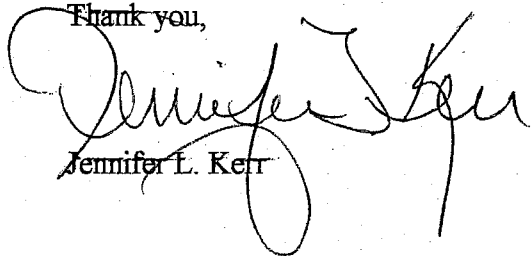 Thank you,
Jennifer L Kerr
Jennifer L. Kerr